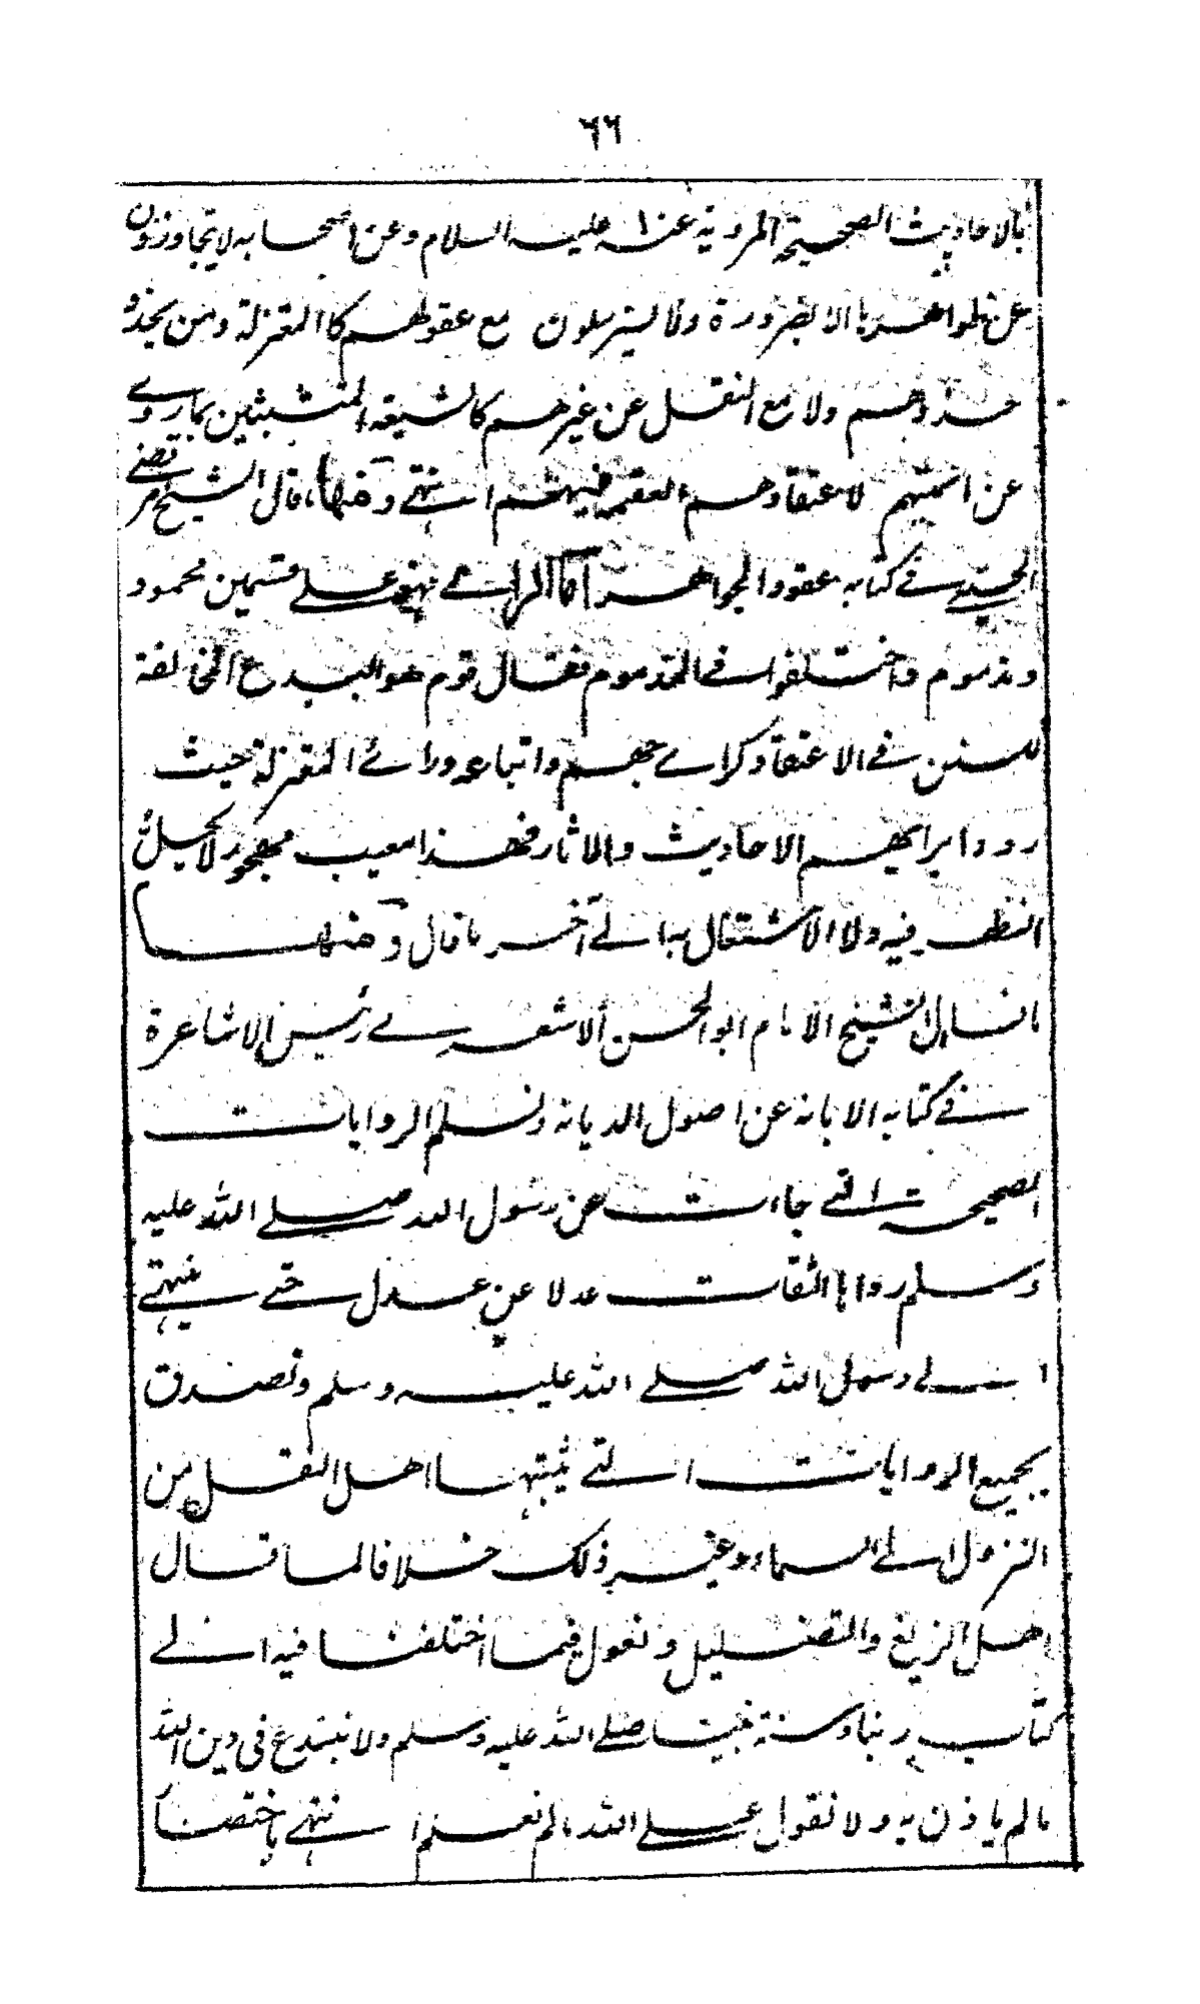 ٦٦
بالاحاديث الصحيحة المروية عنه عليه السلام وعن اصحابه لا يتجاوزون
عن ظواهرها الا لضرورة ولا يسترسلون مع عقولهم كالمعتزلة ومن يحذو
حذوهم ولا مع النقل عن غيرهم كالشيعة المتشبثين بما روے
عن ائمتهم لاعتقادهم العصمة فيهم انتهے ومنها ما قال الشيخ مرتضے
الحسينے فے كتابه عقود الجواهر اما الراے فهو علے قسمين محمود
ومذموم واختلفوا فے المذموم فقال قوم هو البدع المخالفة
للسنن فے الاعتقاد كراے جهم واتباعه وراے المعتزلة حيث
ردوا برايهم الاحاديث والاثار فهذا معيب مهجور لا يحل
النظر فيه ولا الاشتغال به الے آخر ما قال ومنها
ما قال الشيخ الامام ابو الحسن الاشعرے رئيس الاشاعرة
فے كتابه الابانة عن اصول الديانة ونسلم الروايات
الصحيحة التے جاءت عن رسول الله صلے الله عليه
وسلم رواها الثقات عدلا عن عدل حتے ينتهے
الے رسول الله صلے الله عليه وسلم ونصدق
بجميع الروايات التے يثبتها اهل النقل من
النزول الے السماء وغير ذلك خلافا لما قال
اهل الزيغ والتضليل ونعول فيما اختلفنا فيه الے
كتاب ربنا وسنة نبينا صلے الله عليه وسلم ولا نبتدع في دين الله
ما لم ياذن به ولا نقول علے الله ما لم نعلم انتهے ما ختصنا